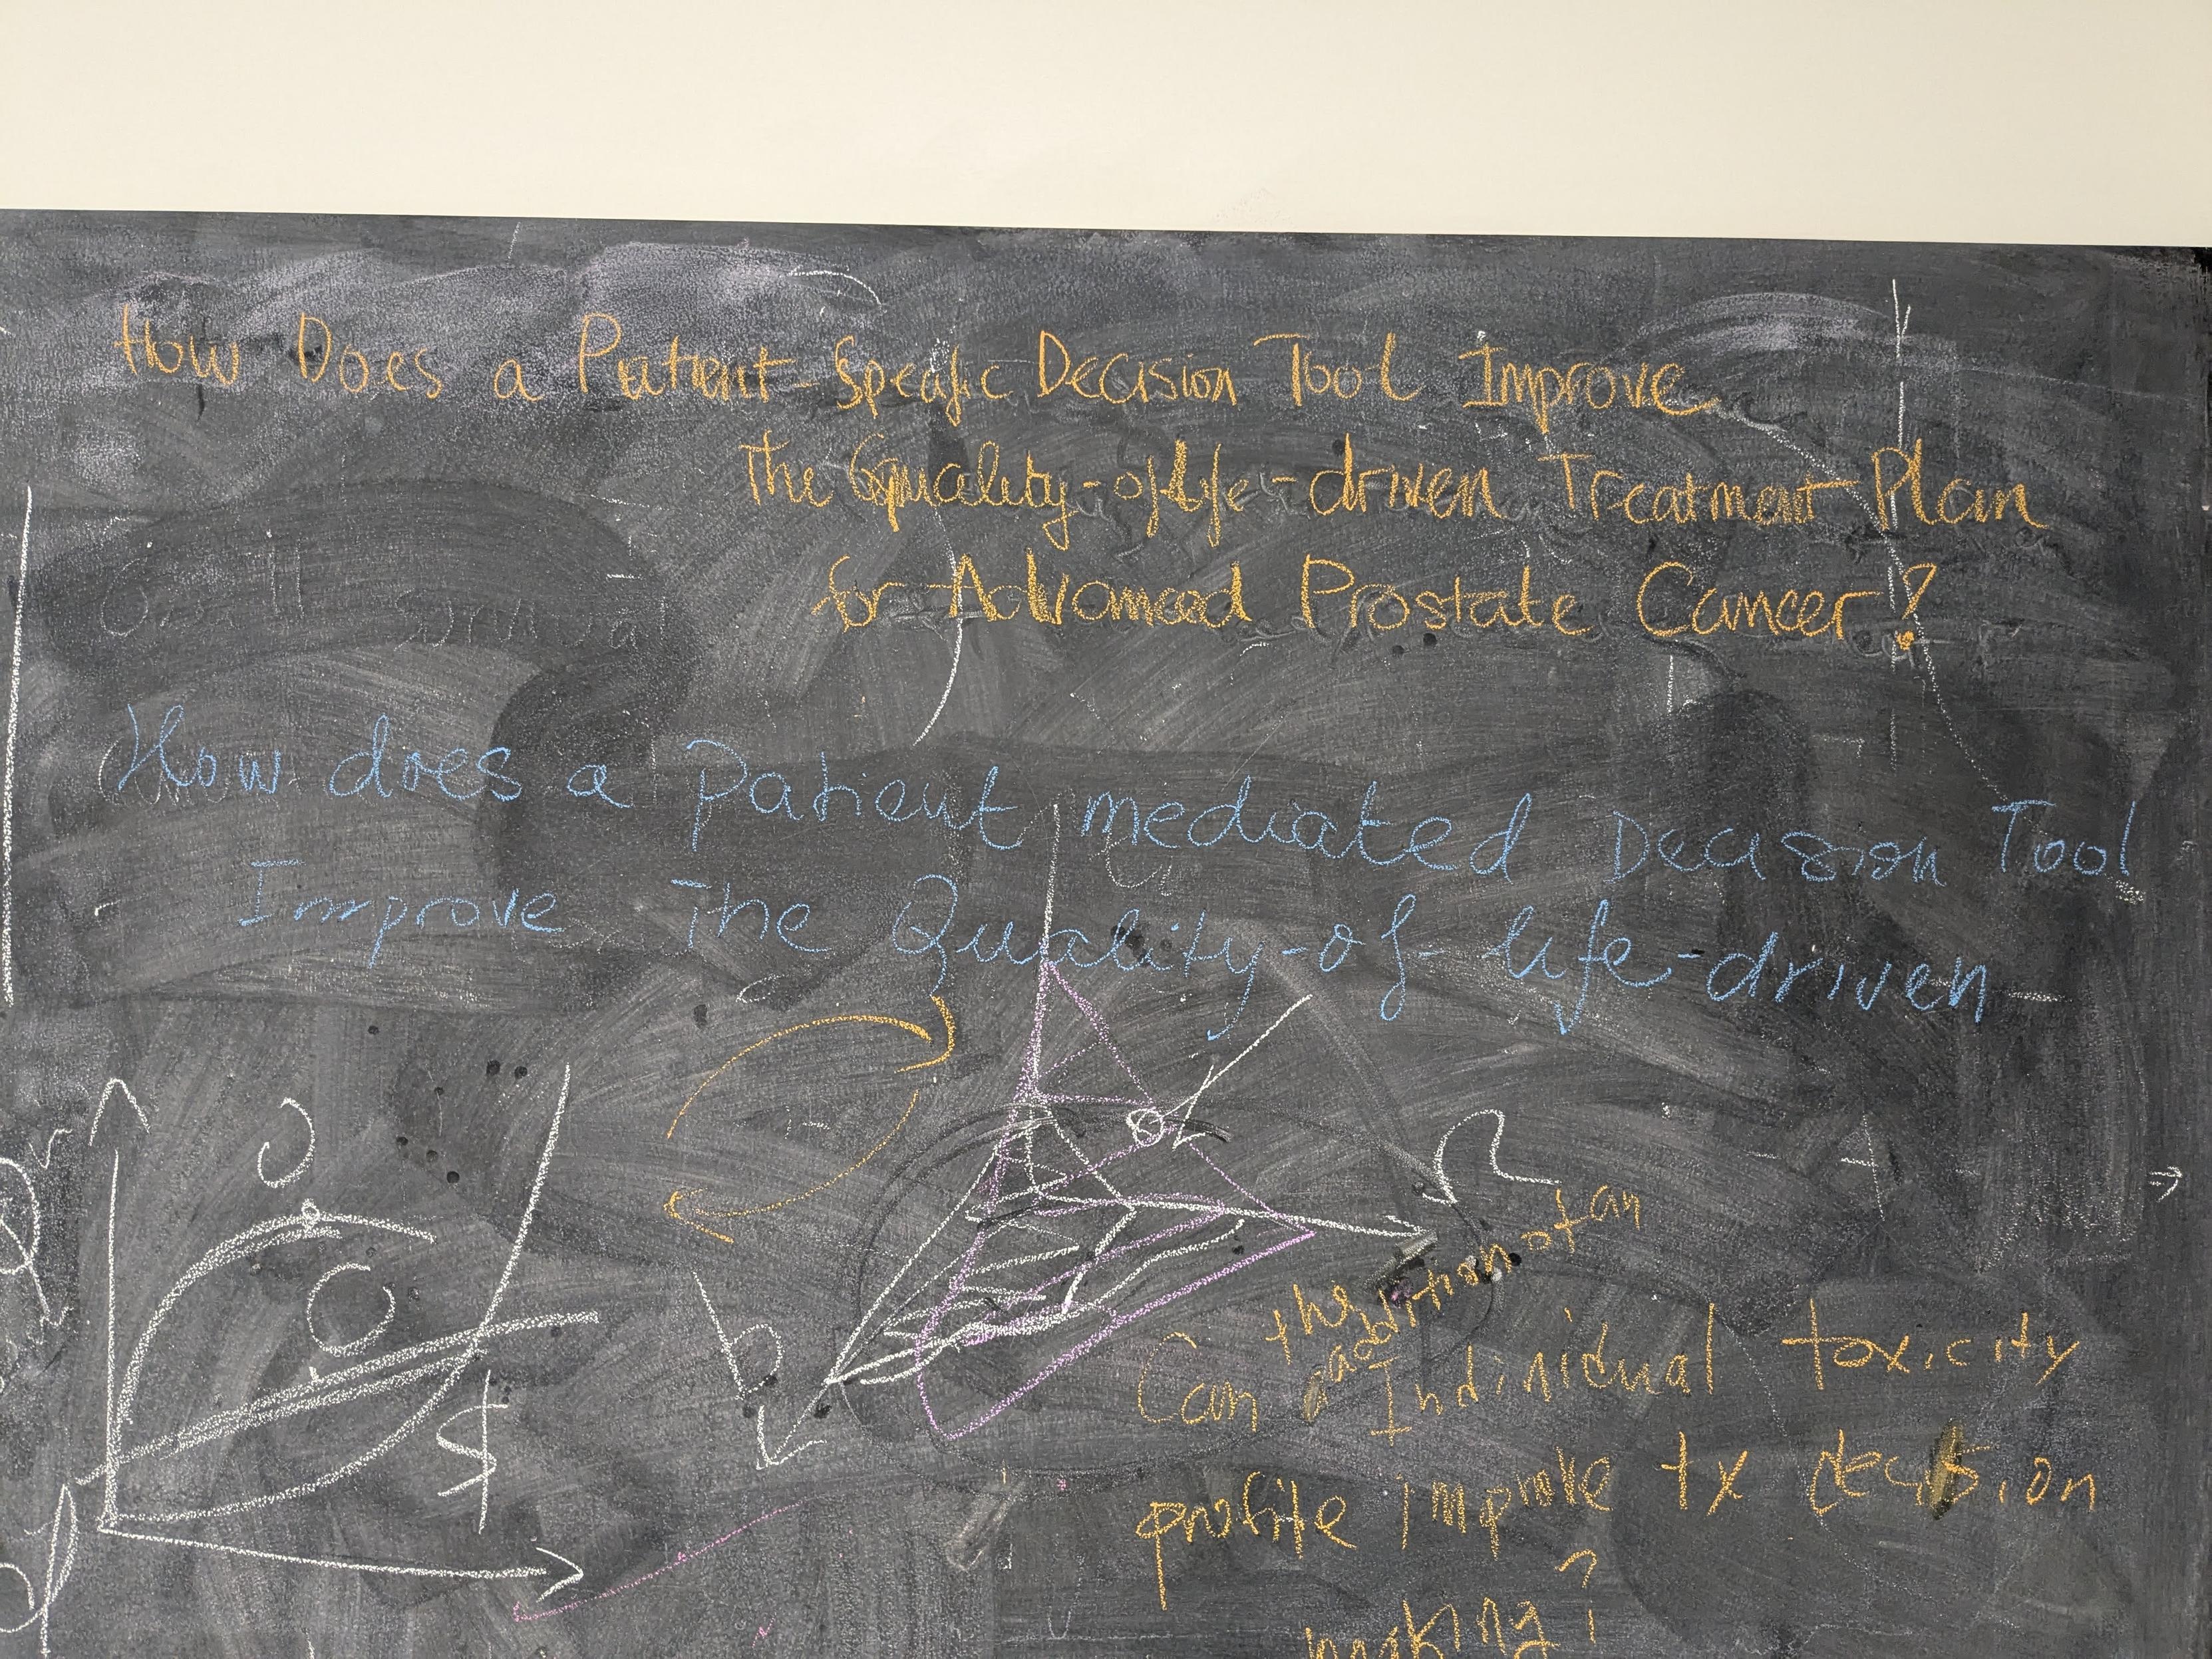 How Does a Patient-Specific Decision Tool Improve
The Quality-of-life-driven Treatment Plan
for Advanced Prostate Cancer?
Overall survival
How does a Patient mediated Decision Tool
Improve The Quality-of-life-driven
b
$
the addition of an
Can Individual toxicity
profile improve tx decision
making?